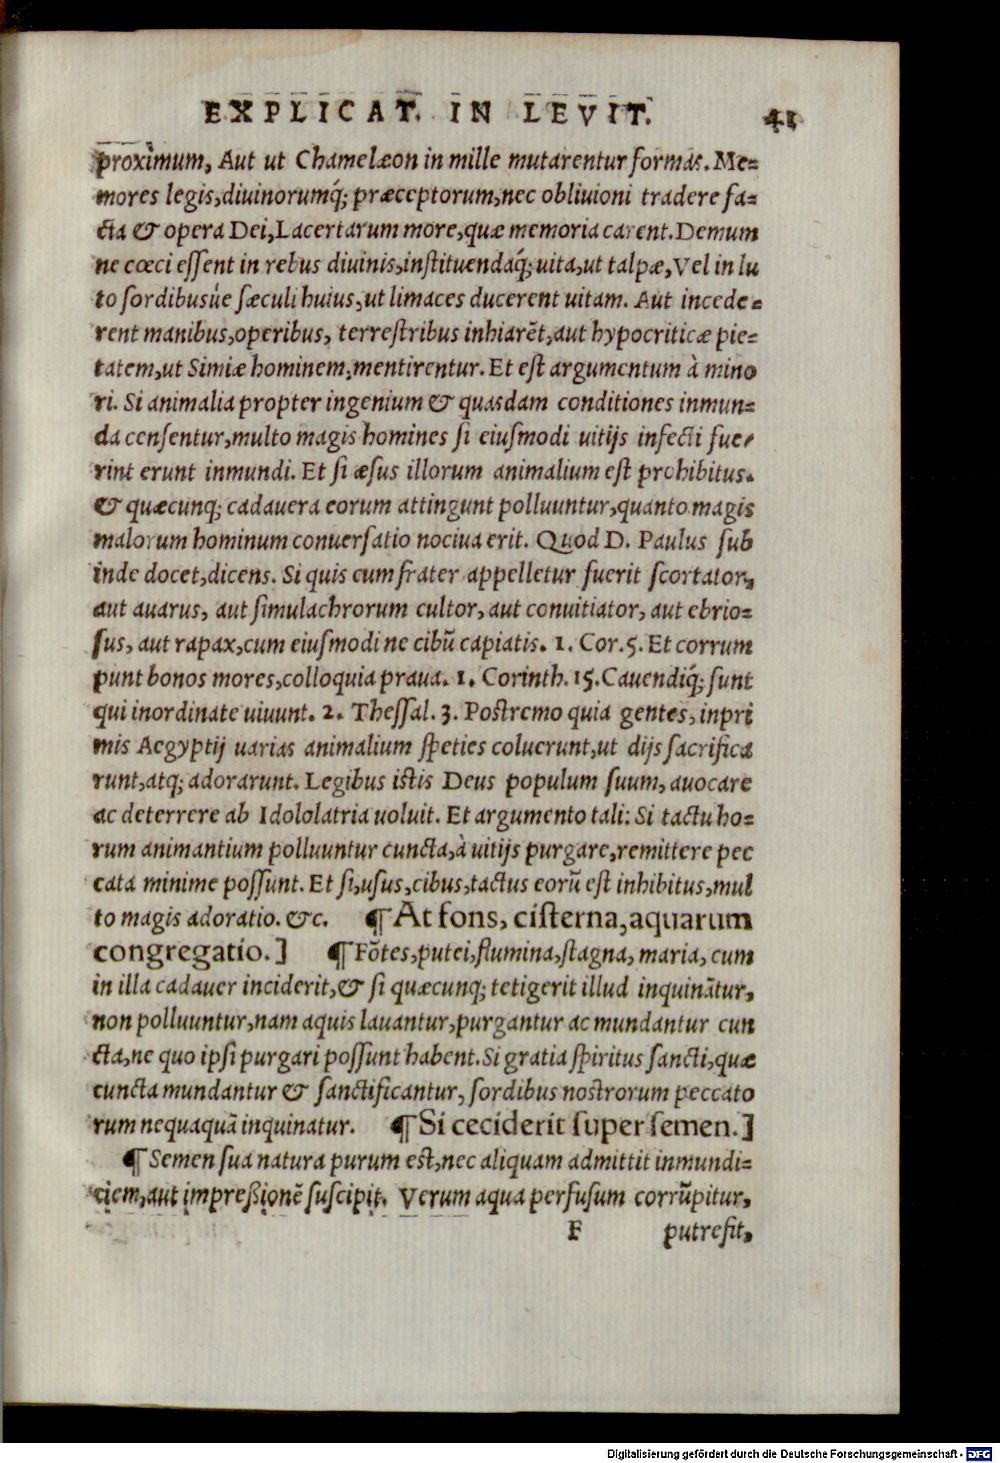 EXPLICAT. IN LEVIT. 41
proximum, Aut ut Chamelæon in mille mutarentur formas. Me=
mores legis, diuinorumq́; præceptorum, nec obliuioni tradere fa=
cta & opera Dei, Lacertarum more, quæ memoria carent. Demum
ne cœci eſſent in rebus diuinis, inſtituendaq́; uita, ut talpæ, Vel in lu
to ſordibusúe ſæculi huius, ut limaces ducerent uitam. Aut incede=
rent manibus, operibus, terreſtribus inhiarēt, aut hypocriticæ pie=
tatem, ut Simiæ hominem, mentirentur. Et eſt argumentum à mino
ri. Si animalia propter ingenium & quasdam conditiones inmun=
da cenſentur, multo magis homines ſi eiuſmodi uitijs infecti fue=
rint erunt inmundi. Et ſi æſus illorum animalium eſt prohibitus.
& quæcunq; cadauera eorum attingunt polluuntur, quanto magis
malorum hominum conuerſatio nociua erit. Quod D. Paulus ſub
inde docet, dicens. Si quis cum frater appelletur fuerit ſcortator,
aut auarus, aut ſimulachrorum cultor, aut conuitiator, aut ebrio=
ſus, aut rapax, cum eiuſmodi ne cibū capiatis. 1. Cor. 5. Et corrum
punt bonos mores, colloquia praua. 1. Corinth. 15. Cauendiq́; ſunt
qui inordinate uiuunt. 2. Theſſal. 3. Poſtremo quia gentes, inpri
mis Aegyptij uarias animalium ſpeties coluerunt, ut dijs ſacrifica
runt, atq; adorarunt. Legibus iſtis Deus populum ſuum, auocare
ac deterrere ab Idololatria uoluit. Et argumento tali: Si tactu ho=
rum animantium polluuntur cuncta, à uitijs purgare, remittere pec
cata minime poſſunt. Et ſi, uſus, cibus, tactus eorū eſt inhibitus, mul
to magis adoratio. &c. ¶ At fons, ciſterna, aquarum
congregatio.] ¶ Fōtes, putei, flumina, ſtagna, maria, cum
in illa cadauer inciderit, & ſi quæcunq; tetigerit illud inquināt̄ur,
non polluuntur, nam aquis lauantur, purgantur ac mundantur cun
cta, ne quo ipſi purgari poſſunt habent. Si gratia ſpiritus ſancti, quæ
cuncta mundantur & ſanctificantur, ſordibus noſtrorum peccato
rum nequaquā inquinatur. ¶ Si ceciderit ſuper ſemen.]
¶ Semen ſua natura purum eſt, nec aliquam admittit inmundi=
ciem, aut impreßionē ſuſcipit. Verum aqua perfuſum corrūpitur,
F putrefit,
Digitalisierung gefördert durch die Deutsche Forschungsgemeinschaft - DFG